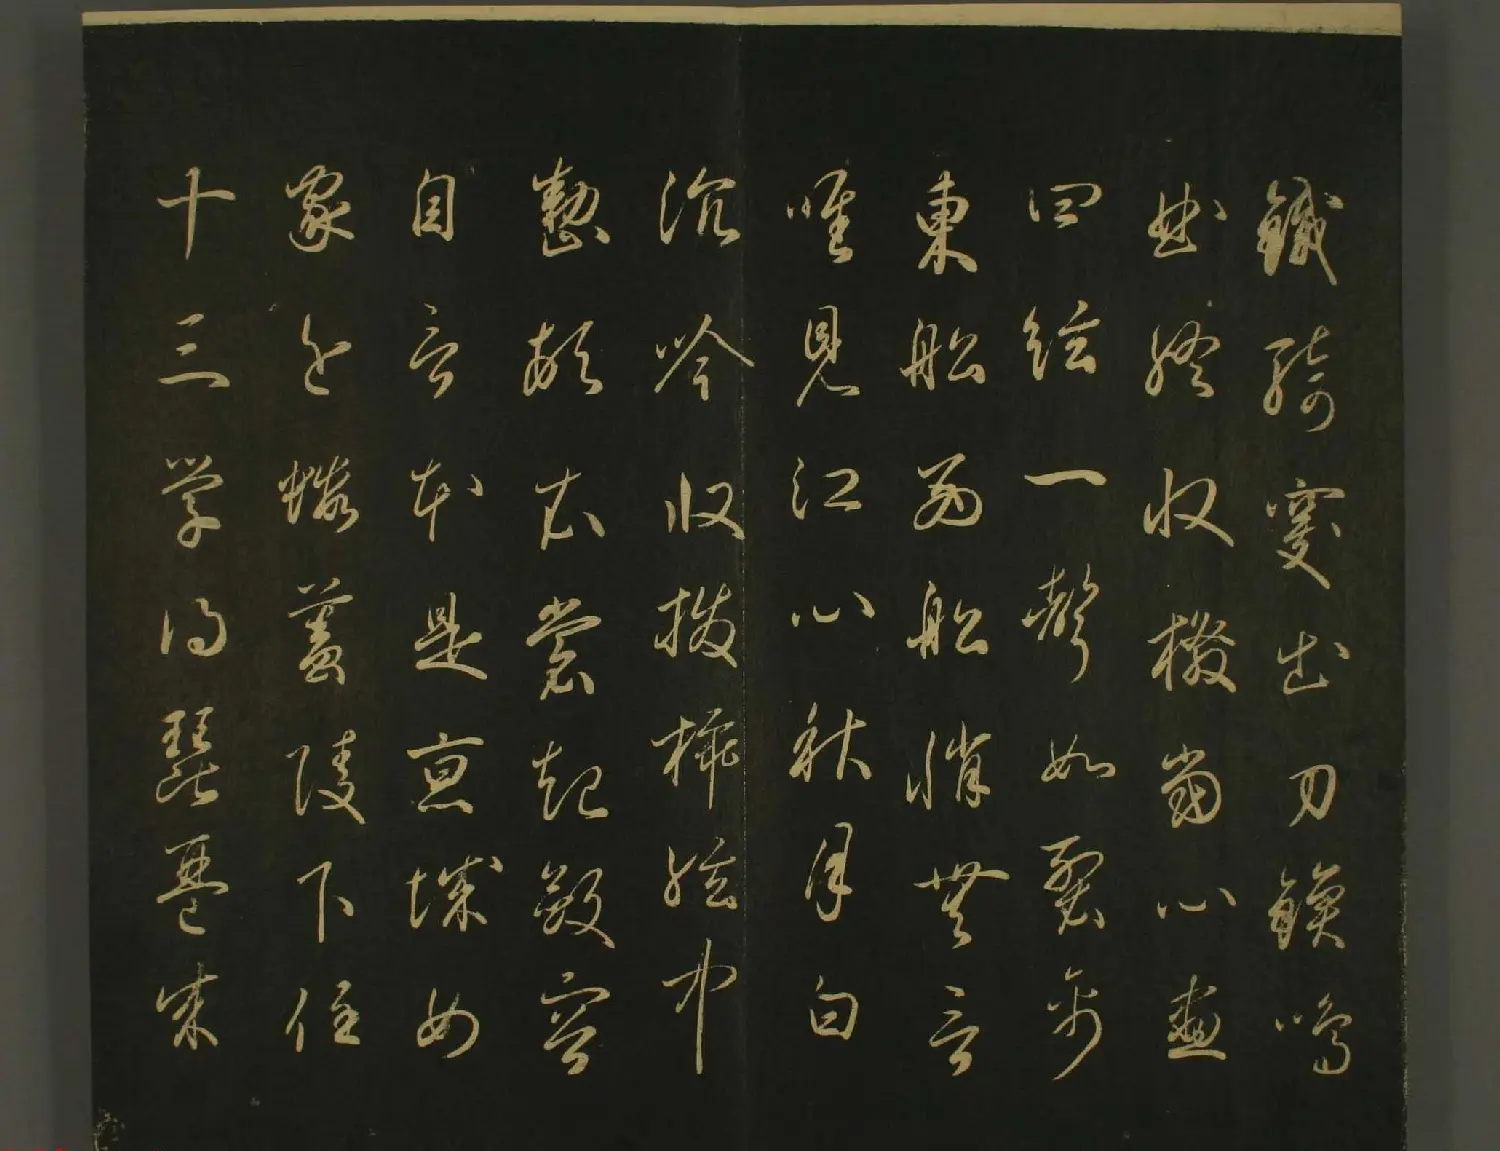 鐵騎突出刀鎗鳴
曲終收撥當心畫
四絃一聲如裂帛
東船西舫悄無言
唯見江心秋月白
沉吟收撥插絃中
整頓衣裳起斂容
自言本是京城女
家在蝦蟇陵下住
十三學得琵琶成